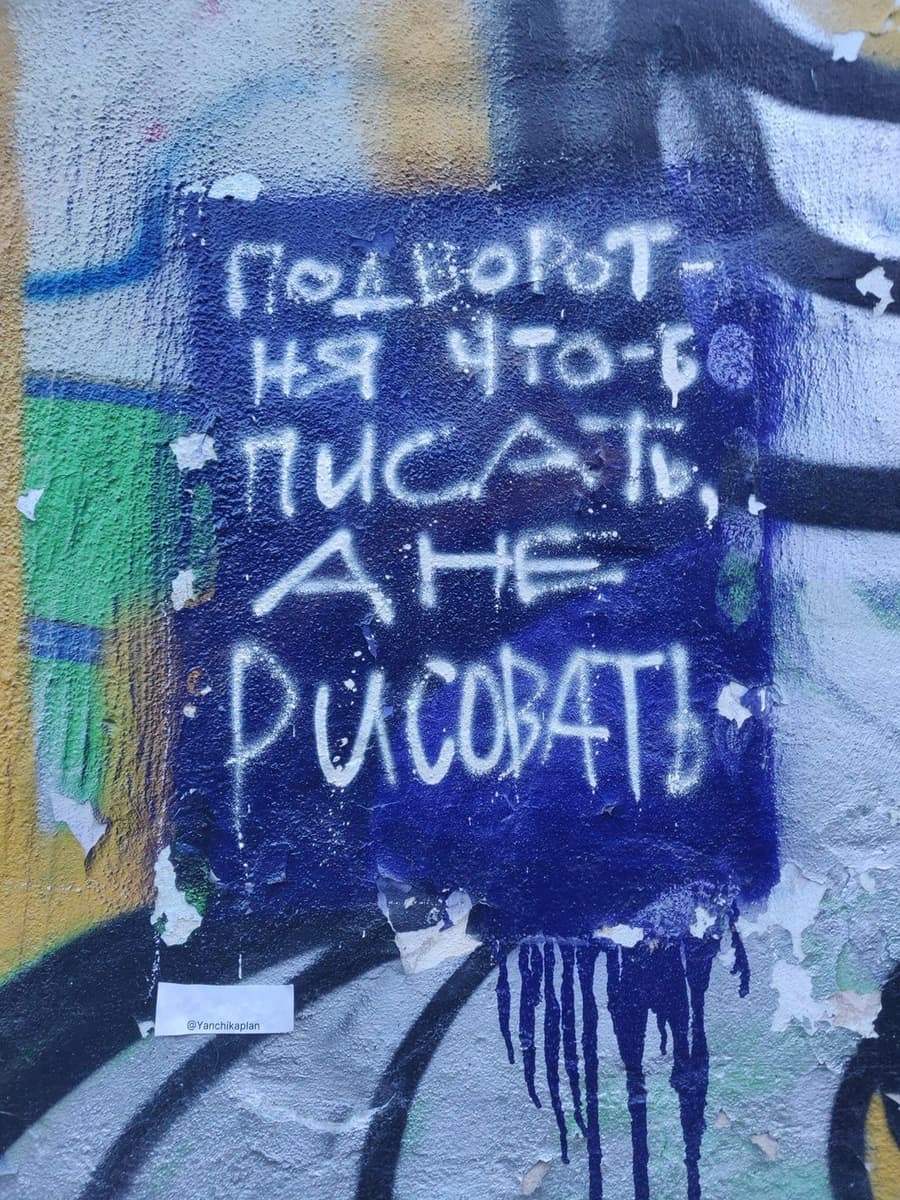 ПОДВОРОТ-
НЯ ЧТО-Б
ПИСАТЬ,
А НЕ
РИСОВАТЬ
@Yanchikaplan